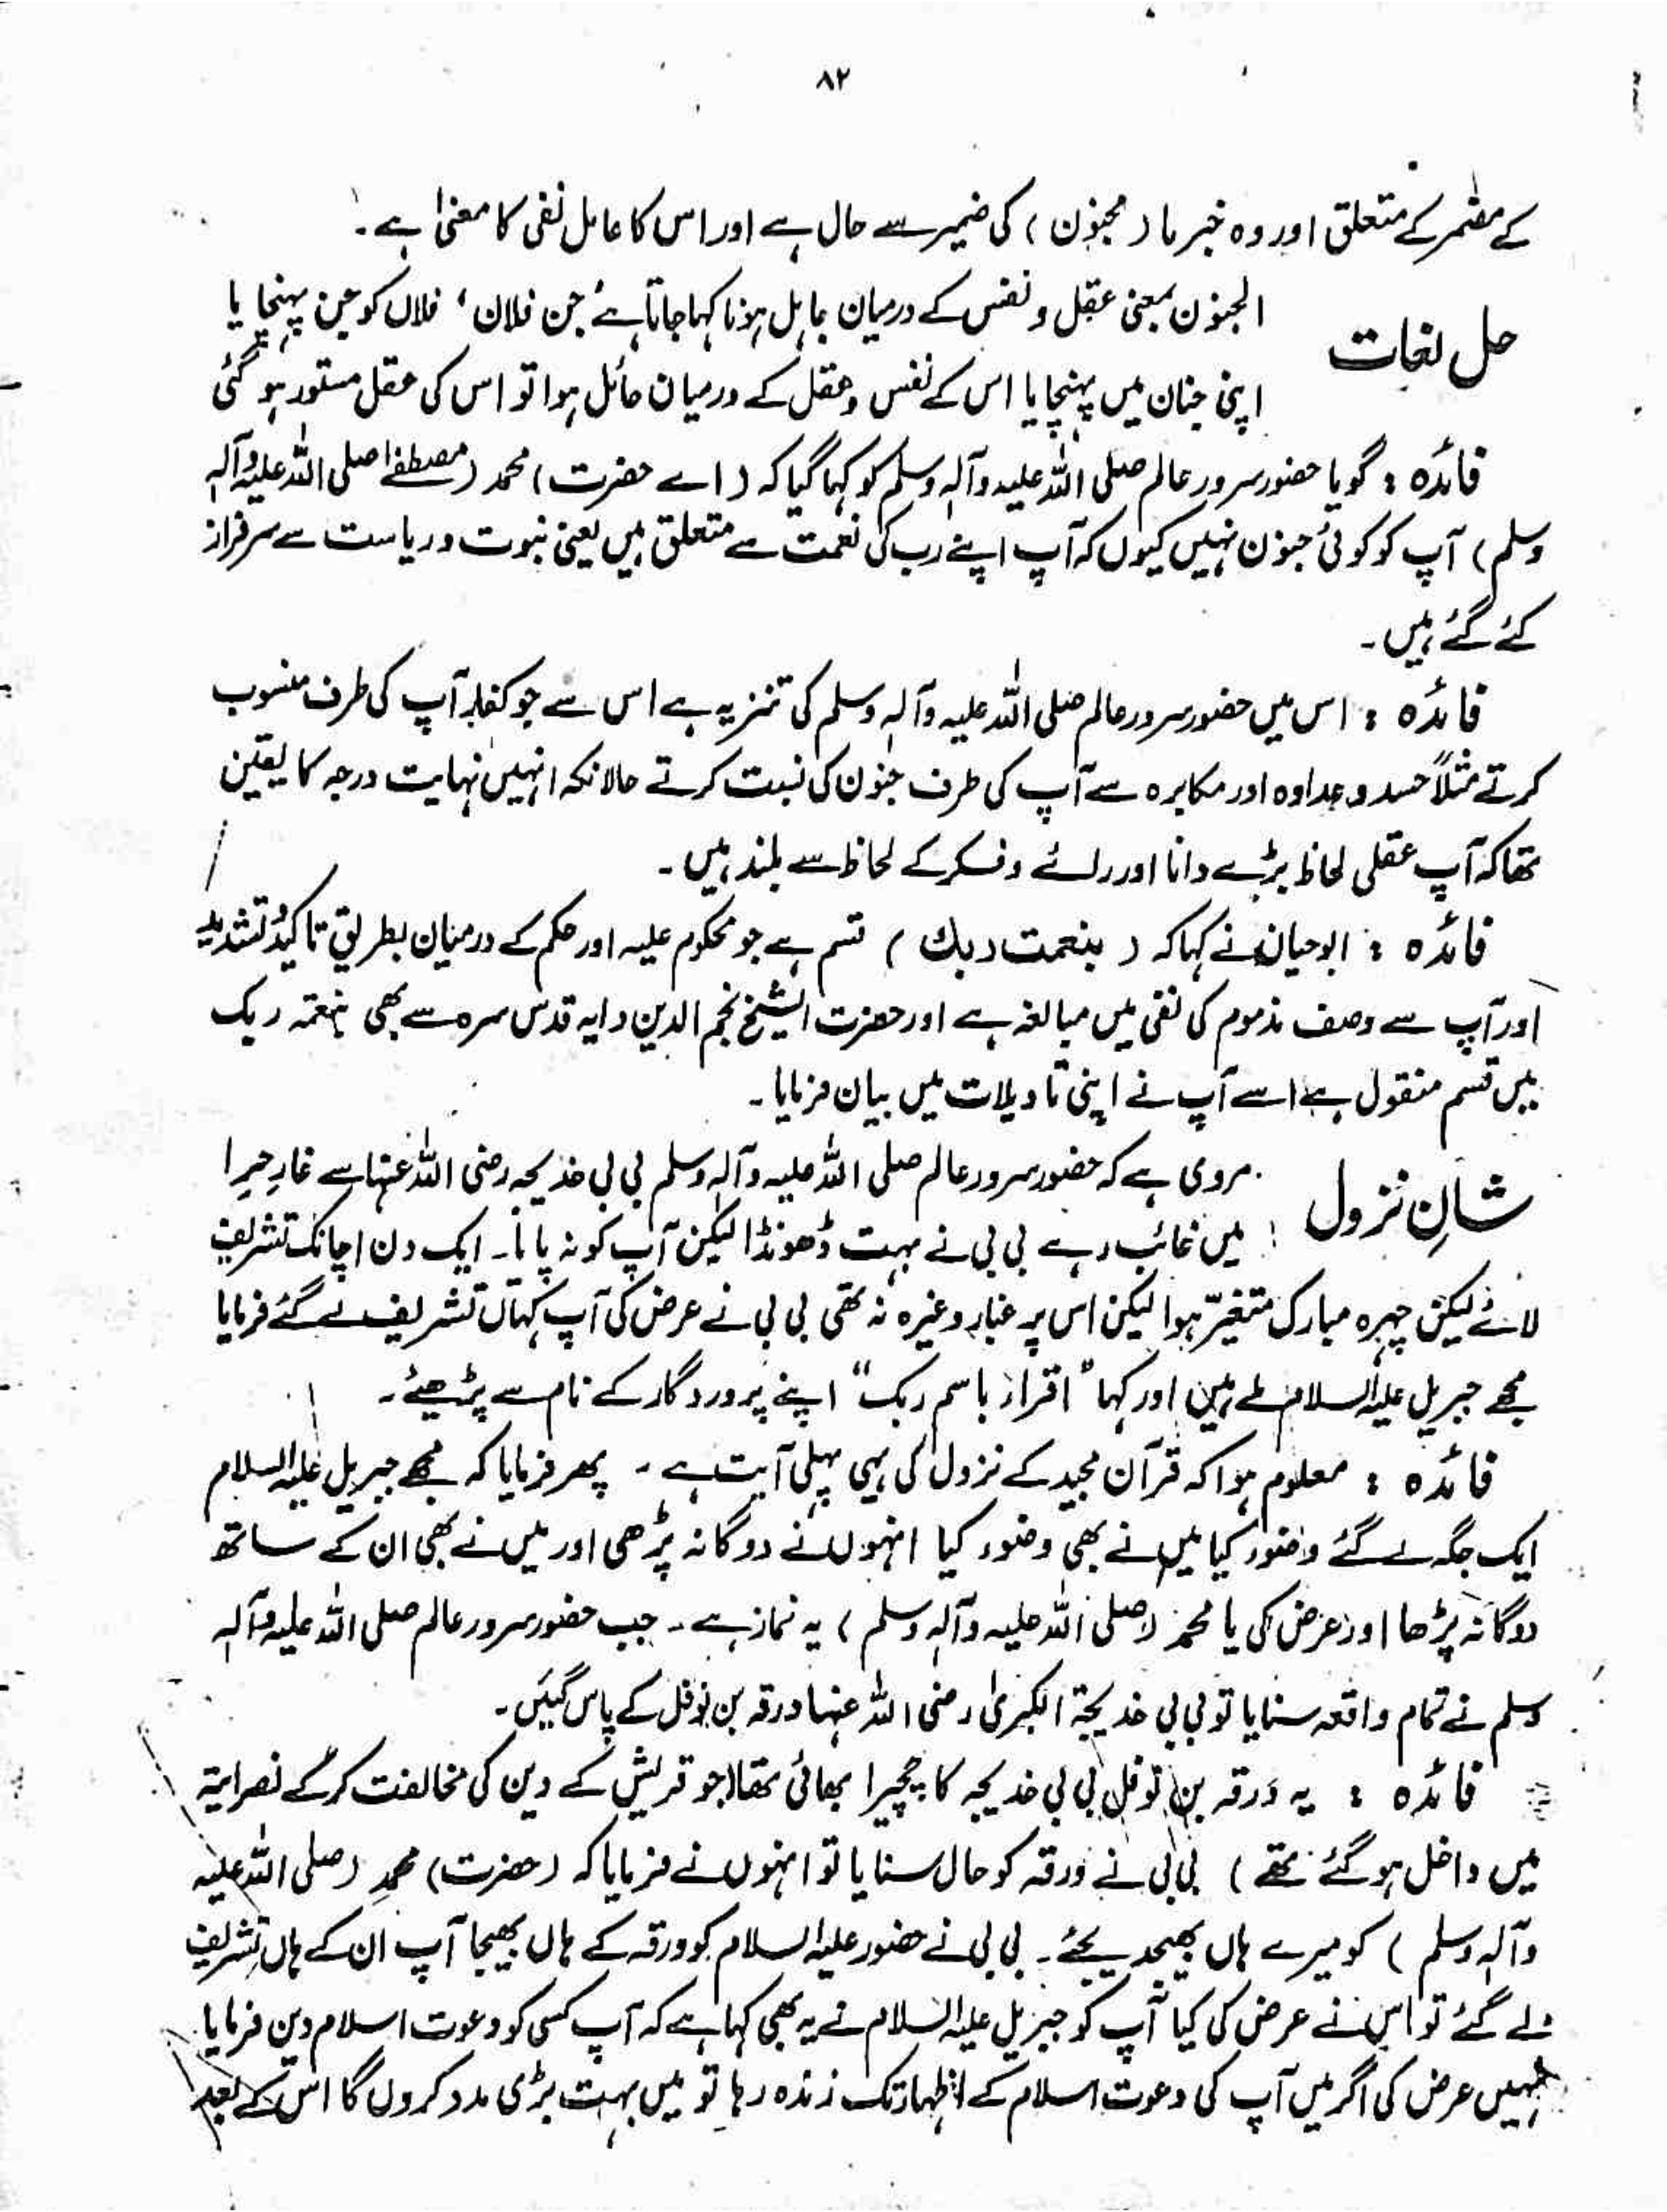 ۸۲
کے مضمر کے متعلق اور وہ خبر ما ( مجنون ) کی ضمیر سے حال ہے اور اس کا عامل نفی کا معنیٰ ہے ۔
حل لغات
الجنون بمعنی عقل و نفس کے درمیان حائل ہونا کہا جاتا ہے جن فلان ، فلاں کو جن پہنچایا
اپنی جنان میں پہنچایا اس کے نفس و عقل کے درمیان حائل ہوا تو اس کی عقل مستور ہو گئی
فائدہ : گویا حضور سرور عالم صلی اللہ علیہ وآلہ وسلم کو کہا گیا کہ ( اے حضرت ) محمد ( مصطفےٰ صلی اللہ علیہ وآلہ
وسلم ) آپ کو کوئی جنون نہیں کیوں کہ آپ اپنے رب کی نعمت سے متعلق ہیں یعنی نبوت و ریاست سے سرفراز
کئے گئے ہیں ۔
فائدہ : اس میں حضور سرور عالم صلی اللہ علیہ وآلہ وسلم کی تنزیہ ہے اس سے جو کفار آپ کی طرف منسوب
کرتے مثلاً حسد و عداوہ اور مکابرہ سے آپ کی طرف جنون کی نسبت کرتے حالانکہ انہیں نہایت درجہ کا یقین
تھا کہ آپ عقلی لحاظ بڑے دانا اور رائے و فکر کے لحاظ سے بلند ہیں ۔
فائدہ : ابوحیان نے کہا کہ ( بنعمت ربك ) قسم ہے جو محکوم علیہ اور حکم کے درمیان بطریق تاکید و تشدید
اور آپ سے وصف مذموم کی نفی میں مبالغہ ہے اور حضرت الشیخ نجم الدین دایہ قدس سرہ سے بھی بنعمۃ ربک
میں قسم منقول ہے اسے آپ نے اپنی تاویلات میں بیان فرمایا ۔
شانِ نزول
مروی ہے کہ حضور سرور عالم صلی اللہ علیہ وآلہ وسلم بی بی خدیجہ رضی اللہ عنہا سے غارِ حرا
میں غائب رہے بی بی نے بہت ڈھونڈا لیکن آپ کو نہ پایا ۔ ایک دن اچانک تشریف
لائے لیکن چہرہ مبارک متغیّر ہوا لیکن اس پر غبار وغیرہ نہ تھی بی بی نے عرض کی آپ کہاں تشریف لے گئے فرمایا
مجھے جبریل علیہ السلام ملے ہیں اور کہا " اقرار باسم ربک " اپنے پروردگار کے نام سے پڑھیئے ۔
فائدہ : معلوم ہوا کہ قرآن مجید کے نزول کی یہی پہلی آیت ہے ۔ پھر فرمایا کہ مجھے جبریل علیہ السلام
ایک جگہ لے گئے وضور کیا میں نے بھی وضور کیا انہوں نے دوگانہ پڑھی اور میں نے بھی ان کے ساتھ
دوگانہ پڑھا اور عرض کی یا محمد ( صلی اللہ علیہ وآلہ وسلم ) یہ نماز ہے ۔ جب حضور سرور عالم صلی اللہ علیہ وآلہ
وسلم نے تمام واقعہ سنایا تو بی بی خدیجۃ الکبریٰ رضی اللہ عنہا ورقہ بن نوفل کے پاس گئیں ۔
فائدہ : یہ ورقہ بن نوفل بی بی خدیجہ کا چچیرا بھائی تھا ( جو قریش کے دین کی مخالفت کر کے نصرانیۃ
میں داخل ہو گئے تھے ) بی بی نے ورقہ کو حال سنایا تو انہوں نے فرمایا کہ ( حضرت ) محمد ( صلی اللہ علیہ
وآلہ وسلم ) کو میرے ہاں بھیجدیجئے ۔ بی بی نے حضور علیہ السلام کو ورقہ کے ہاں بھیجا آپ ان کے ہاں تشریف
لے گئے تو اس نے عرض کی کیا آپ کو جبریل علیہ السلام نے یہ بھی کہا ہے کہ آپ کسی کو دعوت اسلام دیں فرمایا
نہیں عرض کی اگر میں آپ کی دعوت اسلام کے اظہار تک زندہ رہا تو میں بہت بڑی مدد کروں گا اس کے بعد